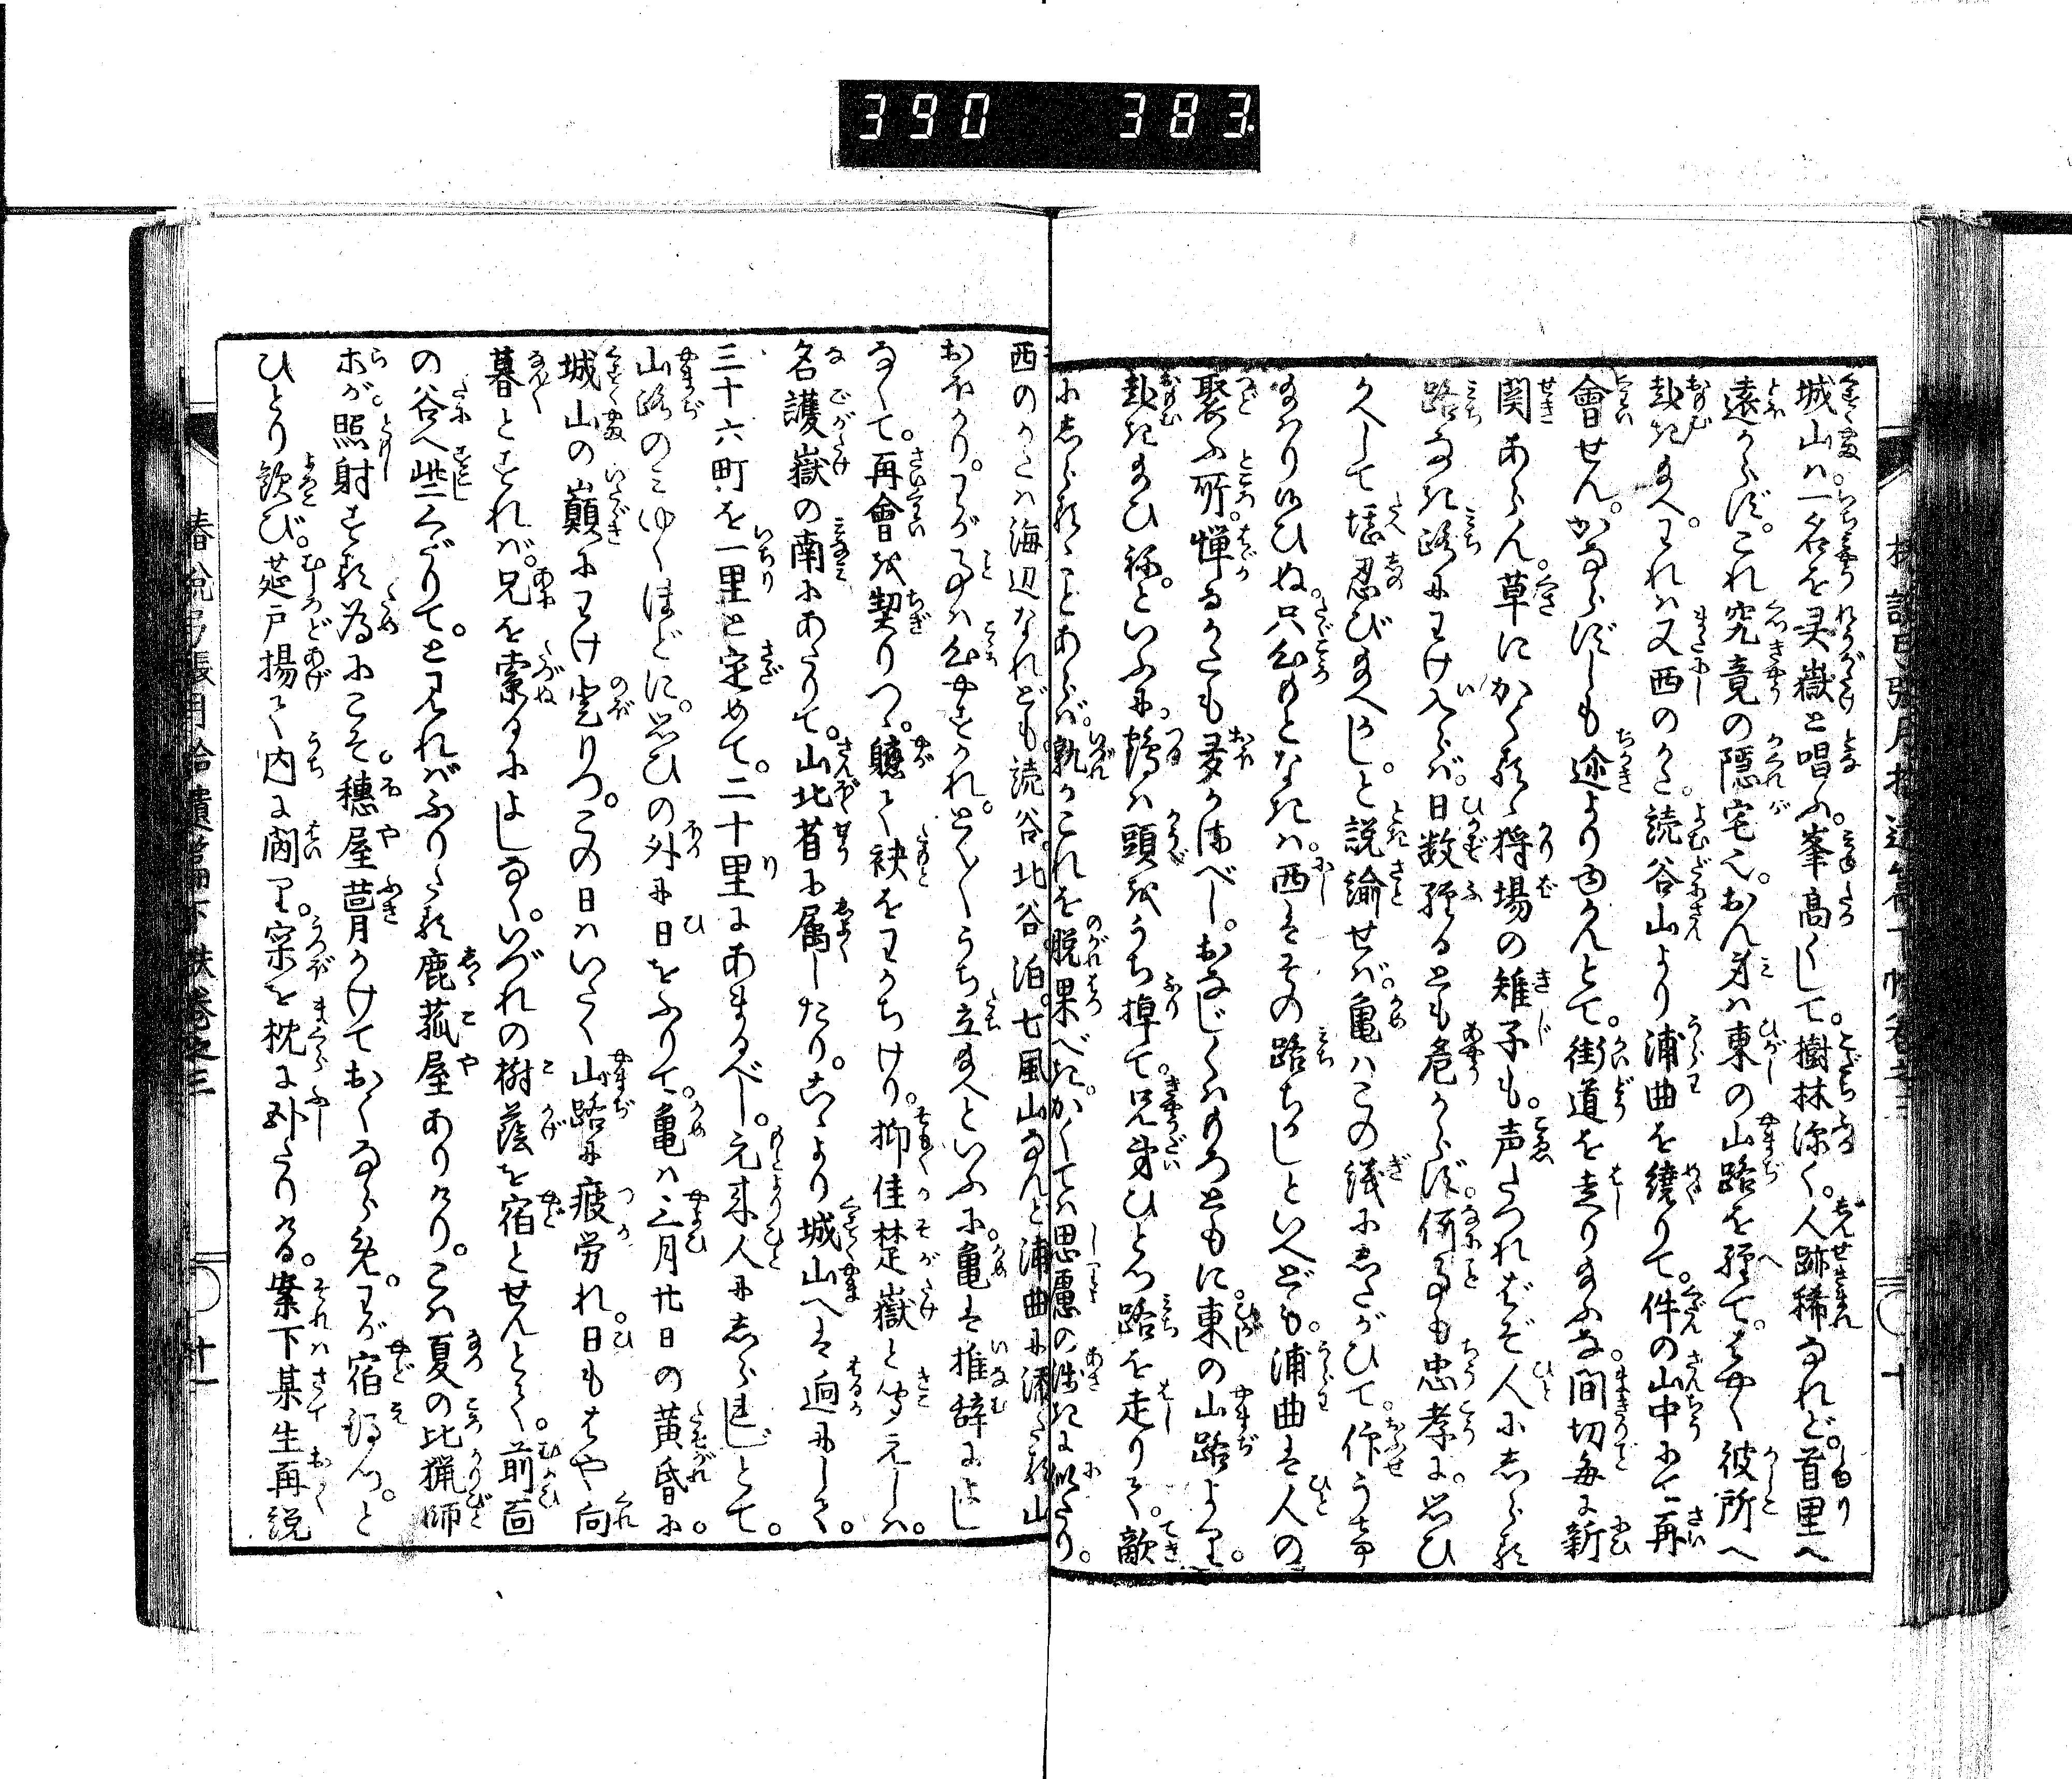 390 383
城山は一名を灵嶽と唱ふ。峯高くして。樹林深く。人跡稀なれど。首里へ
遠からず。これ究竟の隠宅也。おん身は東の山路を經て。はやく彼所へ
赴き給へ。われは又西のかた。読谷山より浦曲を繞りて。件の山中にて再
會せん。かならずしも途よりゆかんとて。街道を走り給ふな。間切毎に新
関あらん。草にかくるゝ狩場の雉子も。声たつればぞ人にしらる
路なき路にわけ入らば。日数經るとも危からず。何事も忠孝に。思ひ
かへして堪忍び給へかし。と説諭せば。亀はこの議にしたがひて。
給はり候ひぬ。只心もとなきは。西はその路ちかしといへども。浦曲は人の
聚ふ所。憚るかたも多かるべし。おなじくはもろともに。東の山路より。
赴き給ひね。といふに。鶴は頭をうち掉て。兄弟ひとつ路を走りて。敵
にしらるゝことあらば。孰かこれを脱果べき。かくては思慮の浅きに似たり。
西のかたは海辺なれども。読谷。北谷。泊。七風山なんど浦曲に添たる山
おほかり。わが事は心やすかれ。とく〳〵うち立給へといふに。亀は推辞によし
なくて。再會を契りつゝ。軈て袂をわかちけり。抑佳楚嶽と聞えしは。
名護嶽の南にあたりて。山北省に属したり。こゝより城山へは迥にして。
三十六町を一里と定めて。二十里にあまるべし。元来人にしられじとて。
山路のみゆくほどに。思ひの外に日をふりて。亀は三月廿日の黄昏に。
城山の巓にわけ登りつ。この日はいたく山路に疲労れ。日もはや向
暮とすれば。兄を索るによしなく。いづれの樹蔭を宿とせんとて。前面
の谷へ些くだりて。と見ればふりたる鹿菰屋ありけり。こは夏の比猟師
ホが。照射する為にこそ。穂屋葺かけておくならめ。わが宿得つ。と
ひとり歓び。莚戸揚て内に入り。を枕に臥たりける。案下某生再説
椿説弓張月拾遺篇下帙巻之三
十
椿説弓張月拾遺篇下帙巻之三
十一